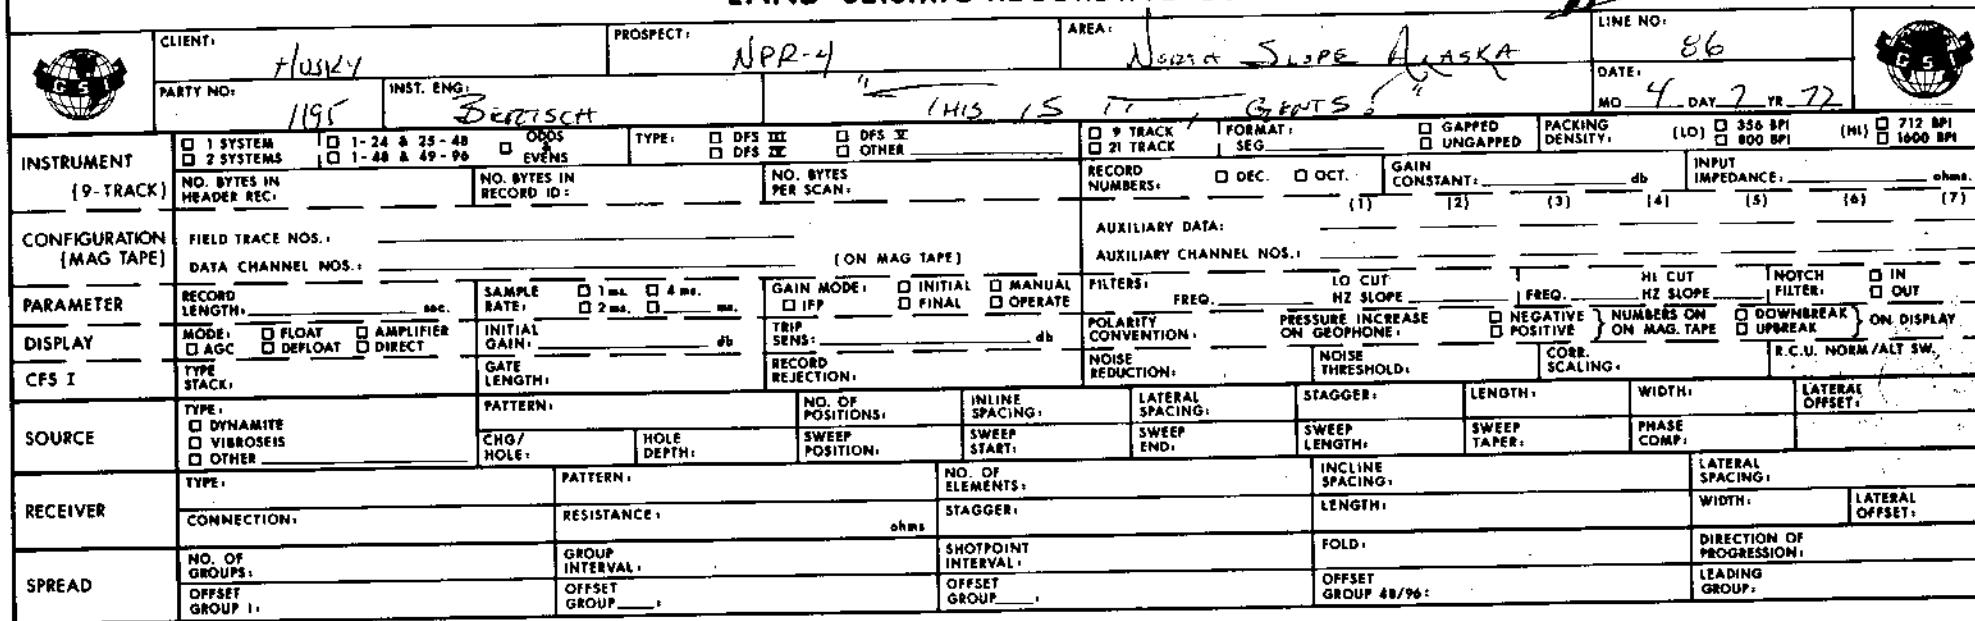 CLIENT: HUSKY PROSPECT: NPR-4 AREA: NORTH SLOPE ALASKA LINE NO: 86
GSI PARTY NO: 1195 INST. ENG: BERTSCH "THIS IS IT, GENTS!" DATE: MO 4 DAY 7 YR 77 GSI
INSTRUMENT □ 1 SYSTEM □ 1-24 & 25-48 □ ODDS & EVENS TYPE: □ DFS III □ DFS V □ 9 TRACK FORMAT: □ GAPPED PACKING DENSITY: (LO) □ 356 BPI (HI) □ 712 BPI
□ 2 SYSTEMS □ 1-48 & 49-96 □ DFS IV □ OTHER □ 21 TRACK SEG □ UNGAPPED □ 800 BPI □ 1600 BPI
(9-TRACK) NO. BYTES IN HEADER REC: NO. BYTES IN RECORD ID: NO. BYTES PER SCAN: RECORD NUMBERS: □ DEC. □ OCT. GAIN CONSTANT: db INPUT IMPEDANCE: ohms.
(1) (2) (3) (4) (5) (6) (7)
CONFIGURATION FIELD TRACE NOS.: AUXILIARY DATA:
(MAG TAPE) DATA CHANNEL NOS.: (ON MAG TAPE) AUXILIARY CHANNEL NOS.:
PARAMETER RECORD LENGTH: sec. SAMPLE RATE: □ 1 ms. □ 4 ms. □ 2 ms. □ ms. GAIN MODE: □ INITIAL □ MANUAL □ IFP □ FINAL □ OPERATE FILTERS: LO CUT FREQ. HZ SLOPE HI CUT FREQ. HZ SLOPE NOTCH FILTER: □ IN □ OUT
DISPLAY MODE: □ FLOAT □ AMPLIFIER □ AGC □ DEFLOAT □ DIRECT INITIAL GAIN: db TRIP SENS: db POLARITY CONVENTION: PRESSURE INCREASE ON GEOPHONE: □ NEGATIVE □ POSITIVE } NUMBERS ON ON MAG. TAPE □ DOWNBREAK □ UPBREAK } ON DISPLAY
CFS I TYPE STACK: GATE LENGTH: RECORD REJECTION: NOISE REDUCTION: NOISE THRESHOLD: CORR. SCALING: R.C.U. NORM/ALT SW.
SOURCE TYPE: □ DYNAMITE □ VIBROSEIS □ OTHER PATTERN: NO. OF POSITIONS: INLINE SPACING: LATERAL SPACING: STAGGER: LENGTH: WIDTH: LATERAL OFFSET:
CHG/HOLE: HOLE DEPTH: SWEEP POSITION: SWEEP START: SWEEP END: SWEEP LENGTH: SWEEP TAPER: PHASE COMP:
RECEIVER TYPE: PATTERN: NO. OF ELEMENTS: INCLINE SPACING: LATERAL SPACING:
CONNECTION: RESISTANCE: ohms STAGGER: LENGTH: WIDTH: LATERAL OFFSET:
SPREAD NO. OF GROUPS: GROUP INTERVAL: SHOTPOINT INTERVAL: FOLD: DIRECTION OF PROGRESSION:
OFFSET GROUP 1: OFFSET GROUP____: OFFSET GROUP____: OFFSET GROUP 48/96: LEADING GROUP: